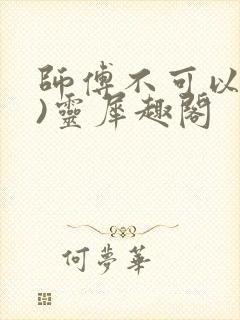 師傅不可以
)靈犀趣閣
何夢華